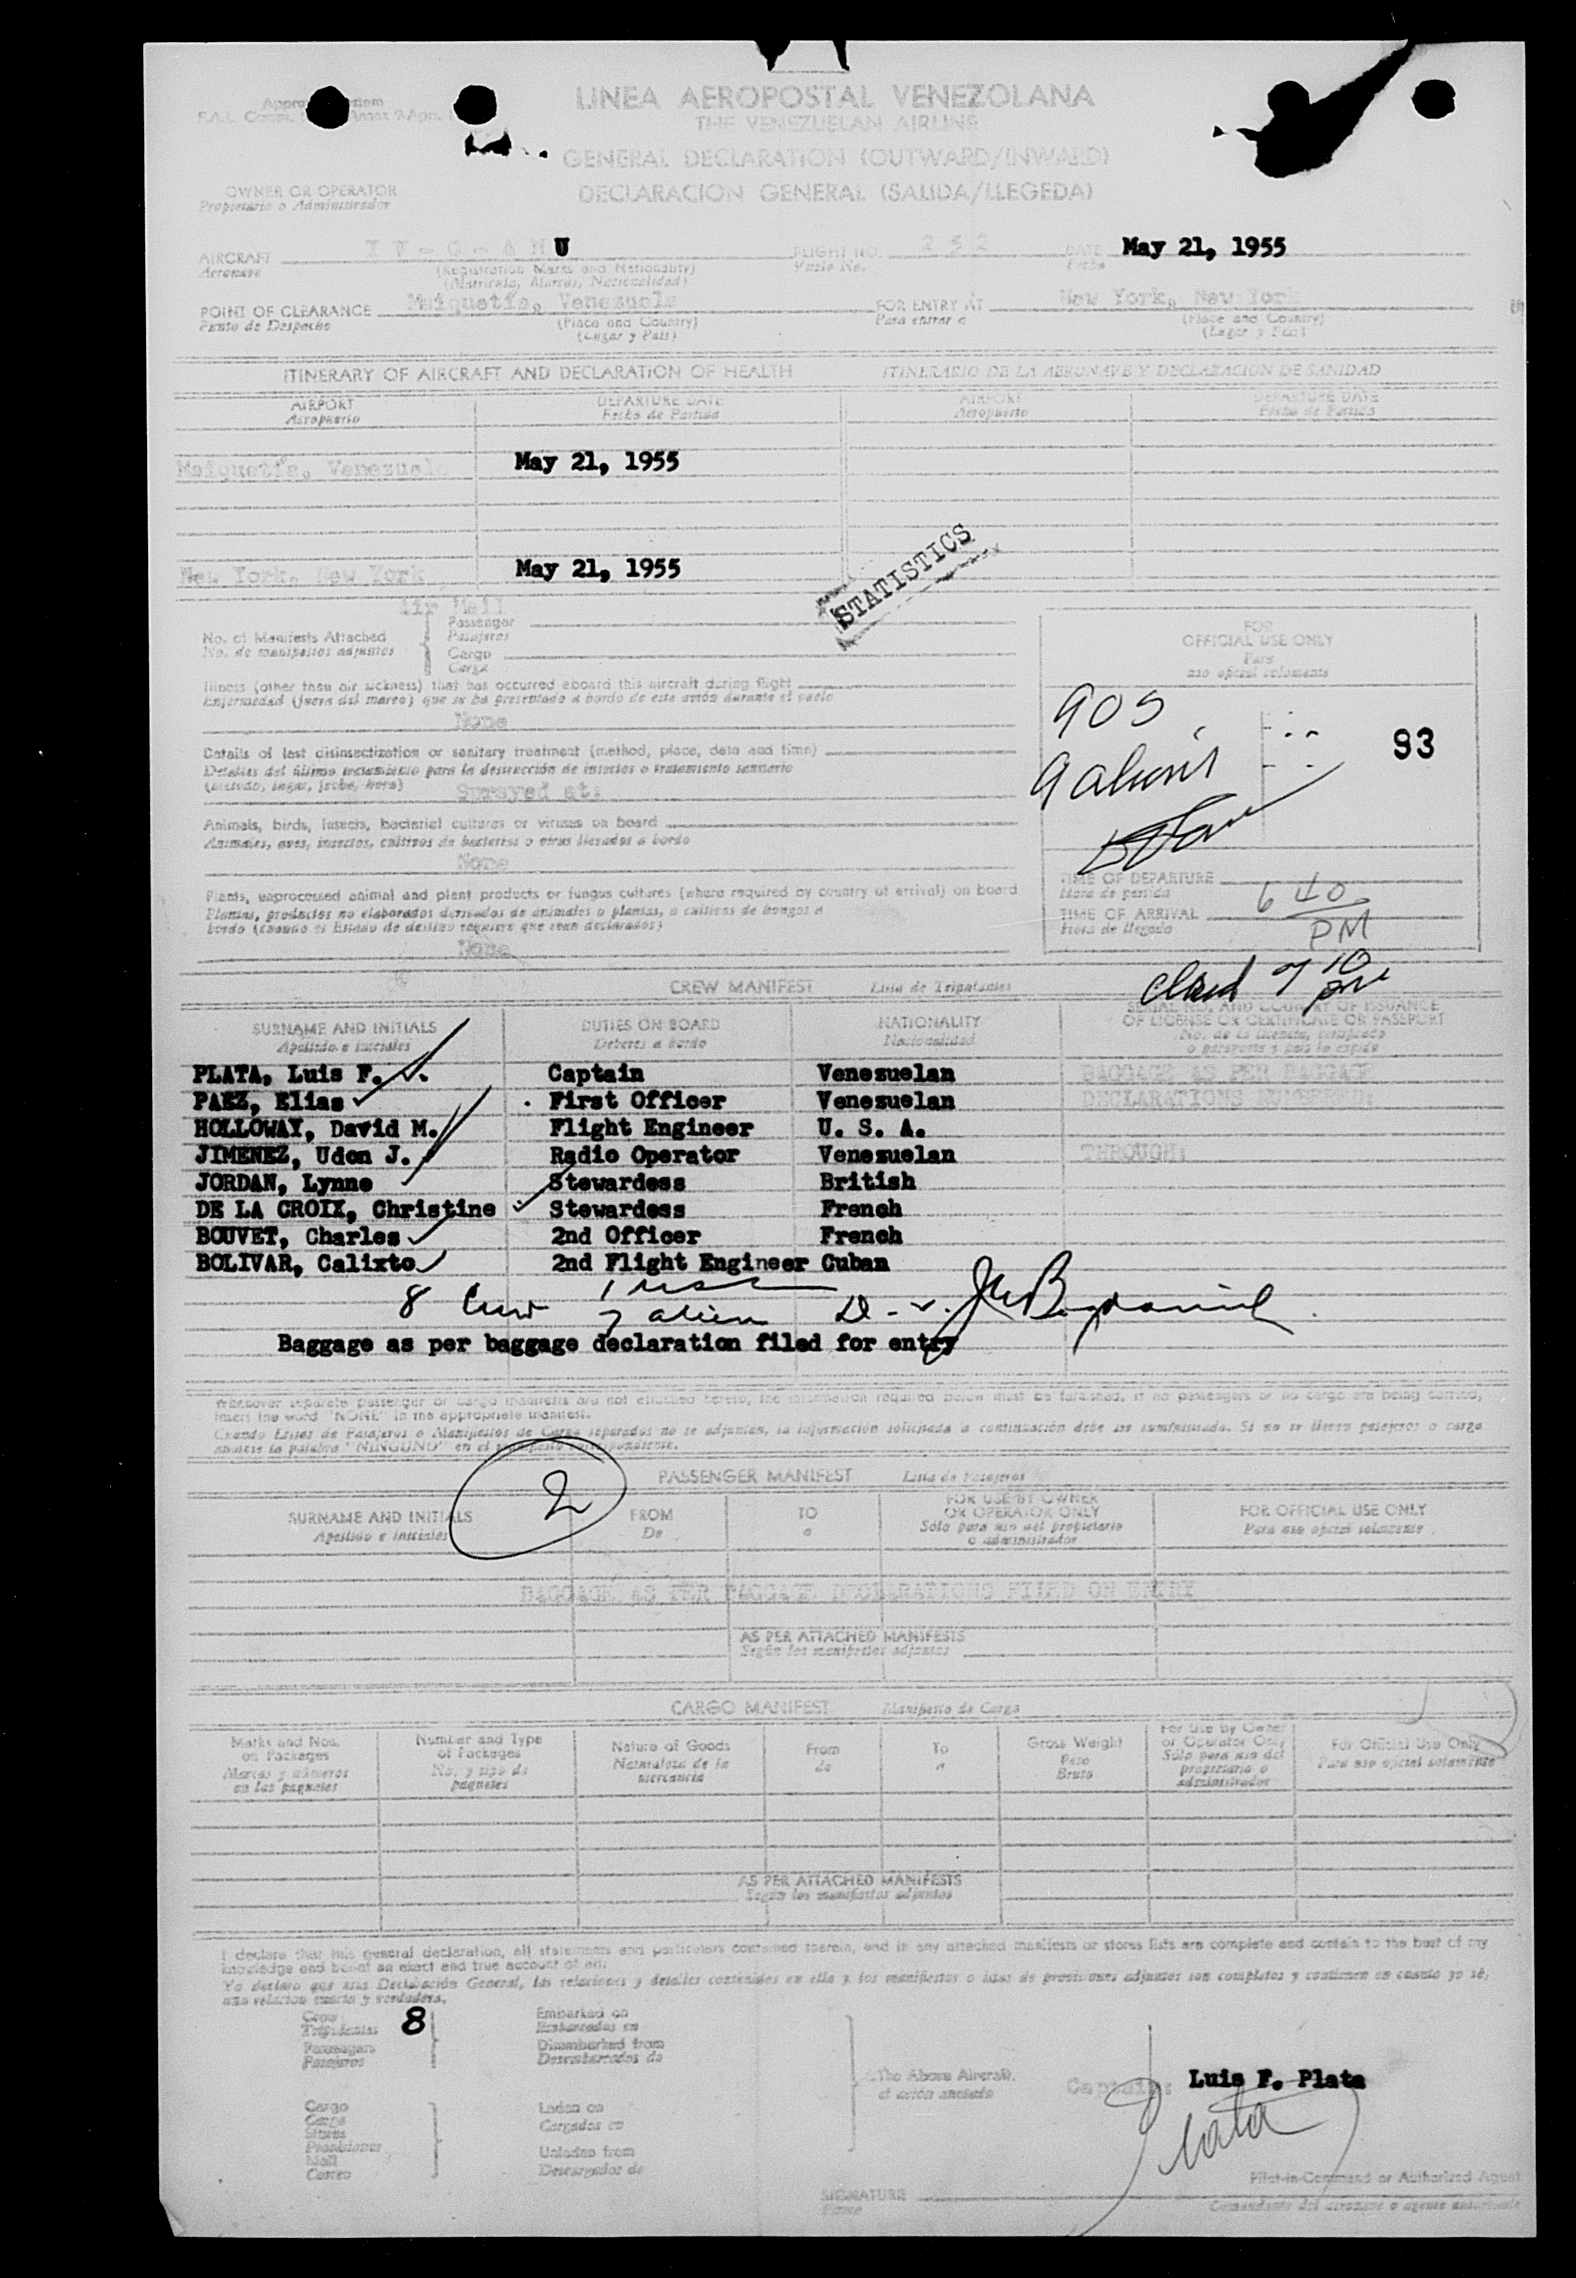 LINEA AEROPOSTAL VENEZOLANA
THE VENEZUELAN AIRLINE
GENERAL DECLARATION (OUTWARD/INWARD)
DECLARACION GENERAL (SALIDA/LLEGEDA)
OWNER OR OPERATOR
Propietario o Administrador
AIRCRAFT U FLIGHT NO. 232 DATE May 21, 1955
Aeronave (Registration Marks and Nationality) Vuelo No. Fecha
(Matricula, Marcas, Nacionalidad)
POINT OF CLEARANCE Maiquetía, Venezuela FOR ENTRY AT New York, New York
Punto de Despacho (Place and Country) Para entrar a (Place and Country)
(Lugar y Pais) (Lugar y Pais)
ITINERARY OF AIRCRAFT AND DECLARATION OF HEALTH ITINERARIO DE LA AERONAVE Y DECLARACION DE SANIDAD
AIRPORT DEPARTURE DATE AIRPORT DEPARTURE DATE
Aeropuerto Fecha de Partida Aeropuerto Fecha de Partida
Maiquetía, Venezuela May 21, 1955
New York, New York May 21, 1955
STATISTICS
Air Mail
No. of Manifests Attached Passenger
No. de manifiestos adjuntos Pasajeros
Cargo
Carga
FOR
OFFICIAL USE ONLY
Para
uso oficial solamente
Illness (other than air sickness) that has occurred aboard this aircraft during flight
Enfermedad (fuera del mareo) que se ha presentado a bordo de este avión durante el vuelo
None
Details of last disinsectization or sanitary treatment (method, place, date and time)
Detalles del último tratamiento para la destrucción de insectos o tratamiento sanitario
(método, lugar, fecha, hora)
Sprayed at:
Animals, birds, insects, bacterial cultures or viruses on board
Animales, aves, insectos, cultivos de bacterias o virus llevados a bordo
None
Plants, unprocessed animal and plant products or fungus cultures (where required by country of arrival) on board
Plantas, productos no elaborados derivados de animales o plantas, o cultivos de hongos a
bordo (cuando el Estado de destino requiere que sean declarados)
None
93
TIME OF DEPARTURE
Hora de partida
TIME OF ARRIVAL 6 40 PM
Hora de llegada
7 10 pm
CREW MANIFEST Lista de Tripulantes
SURNAME AND INITIALS DUTIES ON BOARD NATIONALITY SERIAL NO. AND COUNTRY OF ISSUANCE
OF LICENSE OR CERTIFICATE OR PASSPORT
Apellido e iniciales Deberes a bordo Nacionalidad No. de la licencia, certificado
o pasaporte y pais lo expide
PLATA, Luis F. Captain Venezuelan BAGGAGE AS PER BAGGAGE
PAEZ, Elias First Officer Venezuelan DECLARATIONS NUMBERED:
HOLLOWAY, David M. Flight Engineer U. S. A.
JIMENEZ, Udon J. Radio Operator Venezuelan THROUGH:
JORDAN, Lynne Stewardess British
DE LA CROIX, Christine Stewardess French
BOUVET, Charles 2nd Officer French
BOLIVAR, Calixto 2nd Flight Engineer Cuban
8 Crew
7 alien
Baggage as per baggage declaration filed for entry
Whenever separate passenger or cargo manifests are not attached hereto, the information required below must be furnished. If no passengers or no cargo are being carried,
insert the word "NONE" in the appropriate manifest.
Cuando Listas de Pasajeros o Manifiestos de Carga separados no se adjuntan, la información solicitada a continuación debe ser suministrada. Si no se llevan pasajeros o carga
anótese la palabra "NINGUNO" en el manifiesto correspondiente.
2
PASSENGER MANIFEST Lista de Pasajeros
SURNAME AND INITIALS FROM TO FOR USE BY OWNER
OR OPERATOR ONLY FOR OFFICIAL USE ONLY
Apellido e iniciales De a Sólo para uso del propietario
o administrador Para uso oficial solamente
BAGGAGE AS PER BAGGAGE DECLARATIONS FILED ON ENTRY
AS PER ATTACHED MANIFESTS
Según los manifiestos adjuntos
CARGO MANIFEST Manifiesto de Carga
Marks and Nos.
on Packages
Marcas y números
en los paquetes
Number and Type
of Packages
No. y tipo de
paquetes
Nature of Goods
Naturaleza de la
mercancía
From
de
To
a
Gross Weight
Peso
Bruto
For Use by Owner
or Operator Only
Sólo para uso del
propietario o
administrador
For Official Use Only
Para uso oficial solamente
AS PER ATTACHED MANIFESTS
Según los manifiestos adjuntos
I declare that this general declaration, all statements and particulars contained therein, and in any attached manifests or stores lists are complete and contain to the best of my
knowledge and belief an exact and true account of all.
Yo declaro que esta Declaración General, las relaciones y detalles contenidos en ella y los manifiestos o listas de provisiones adjuntos son completos y contienen en cuanto yo sé,
una relación exacta y verdadera.
Crew
Tripulantes 8
Passengers
Pasajeros
Embarked on
Embarcados en
Disembarked from
Desembarcados de
The Above Aircraft
el avión anotado
Captain: Luis F. Plata
Plata
Cargo
Carga
Stores
Provisiones
Mail
Correo
Laden on
Cargados en
Unladen from
Descargados de
Pilot-in-Command or Authorized Agent
SIGNATURE
Firma
Comandante del aeronave o agente autorizado